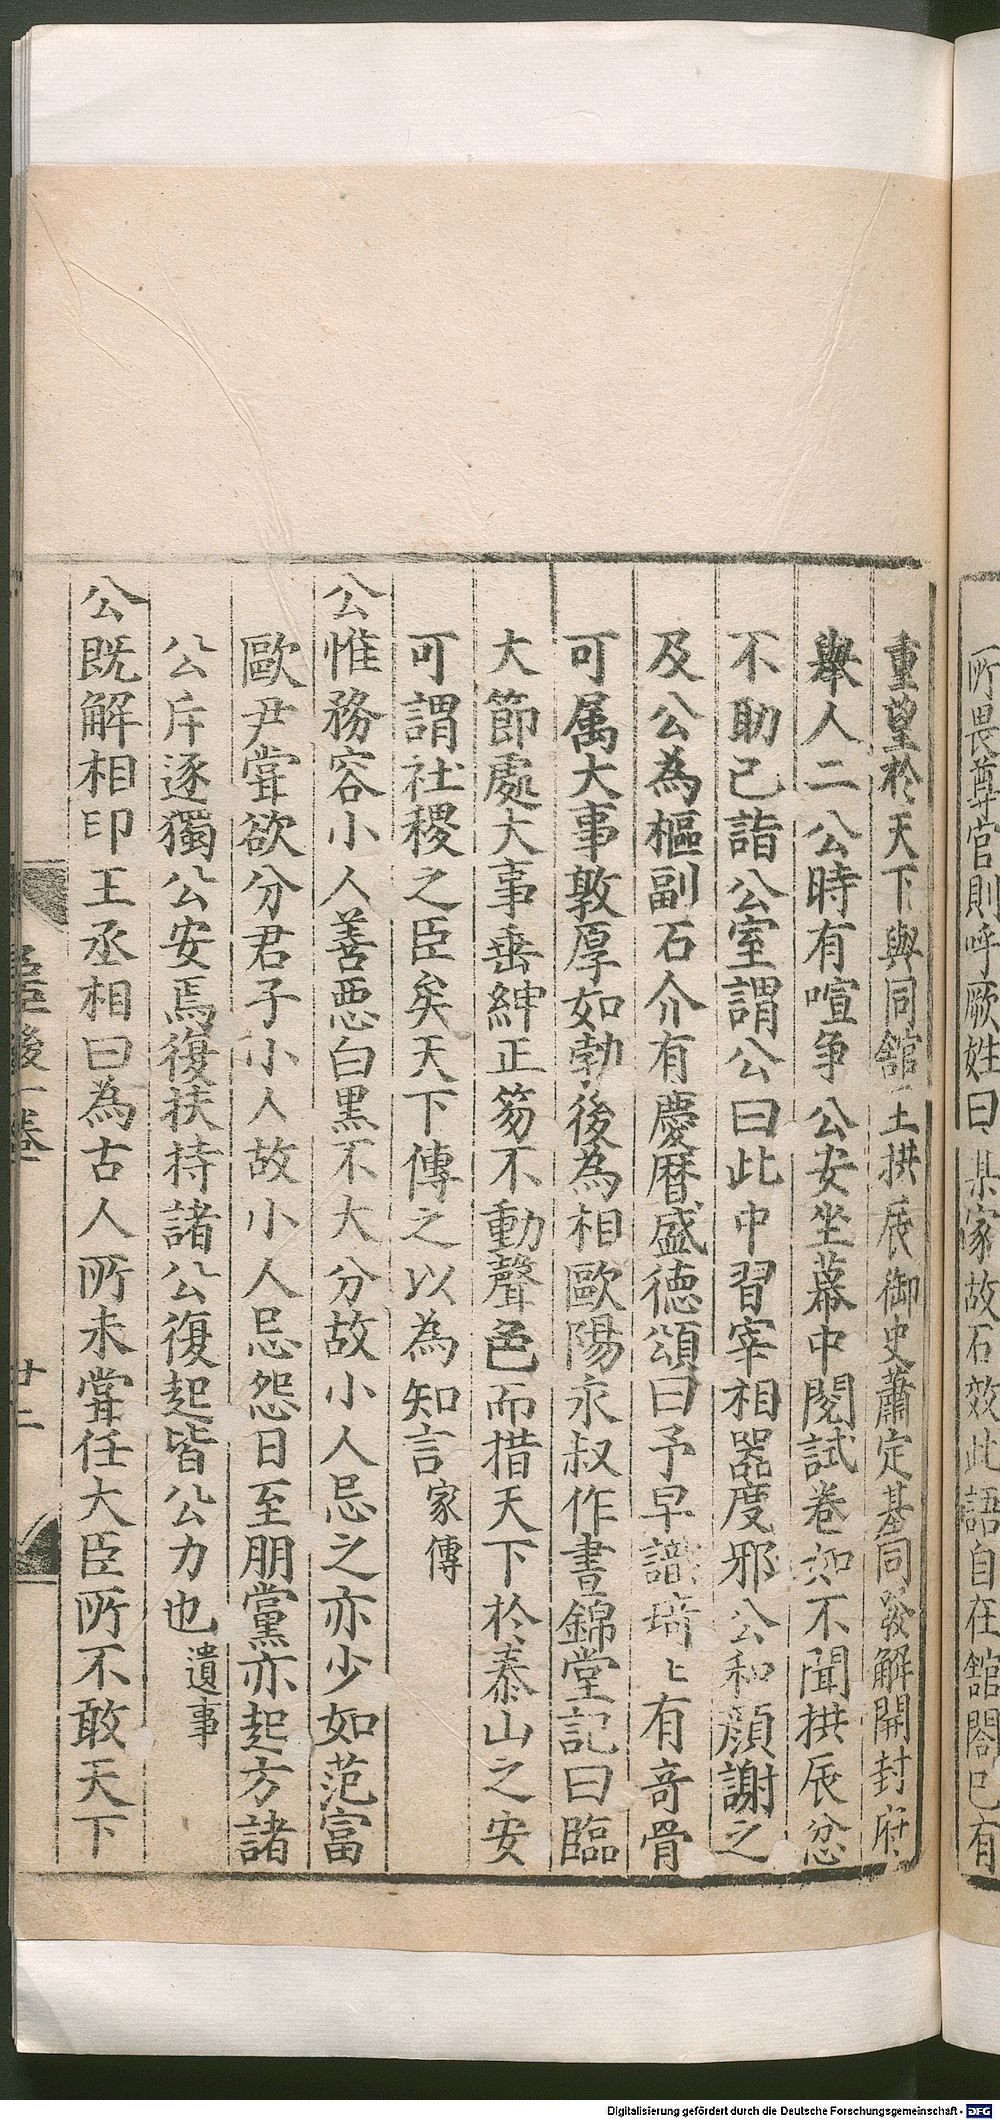 所畏尊官則呼厥姓曰某家故石效此語自在館閣已有
重望於天下與同館王拱辰御史蕭定基同發解開封府
舉人二公時有喧爭公安坐幕中閱試卷如不聞拱辰忿
不助己詣公室謂公曰此中習宰相器度邪公和顏謝之
及公為樞副石介有慶曆盛德頌曰予早識琦〻有奇骨
可属大事敦厚如勃後為相歐陽永叔作晝錦堂記曰臨
大節處大事垂紳正笏不動聲色而措天下於泰山之安
可謂社稷之臣矣天下傳之以為知言家傳
公惟務容小人善惡白黑不大分故小人忌之亦少如范富
歐尹甞欲分君子小人故小人忌怨日至朋黨亦起方諸
公斥逐獨公安焉復扶持諸公復起皆公力也遺事
公既解相印王丞相曰為古人所未甞任大臣所不敢天下
後一卷
廿二
Digitalisierung gefördert durch die Deutsche Forschungsgemeinschaft - DFG